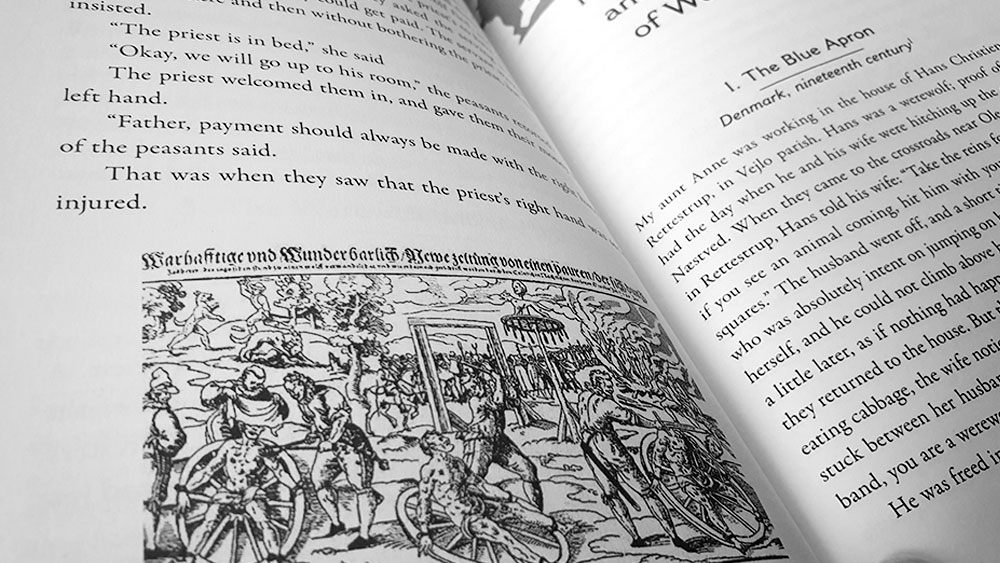 insisted.
and then without bothering the priest
could get paid. The servant
asked the
“The priest is in bed,” she said
“Okay, we will go up to his room,” the peasants
The priest welcomed them in, and gave them their
left hand.
“Father, payment should always be made with the right
of the peasants said.
That was when they saw that the priest’s right hand was
injured.
Warhafftige vnd Wunderbarlich Newe zeitung von einen pauren der
an
of W
I. The Blue Apron
Denmark, nineteenth century
My aunt Anne was working in the house of Hans
Rettestrup, in Vejlo parish. Hans was a werewolf; proof of
had the day when he and his wife were hitching up the
Næstved. When they came to the crossroads near
in Rettestrup, Hans told his wife: “Take the reins
if you see an animal coming, hit him with
squares.” The husband went off, and a short
who was absolutely intent on jumping on
herself, and he could not climb above
a little later, as if nothing had
they returned to the house. But
eating cabbage, the wife
stuck between her
band, you are a
He was freed